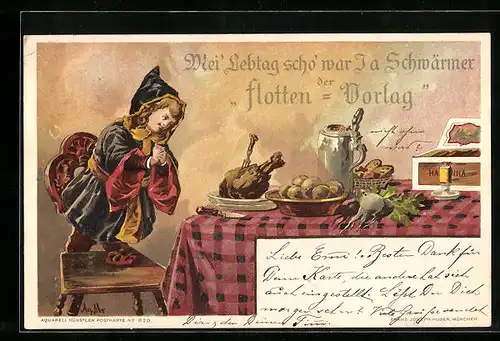 Mei' Lebtag scho' war I a Schwärmer
der
„flotten = Vorlag"
HAVANNA
Liebe Emmi! Besten Dank für
Deine Karte, die andere hat sich
auch eingestellt. Läßt Du Dich
morgen sehen?
Dir & der Deinen
AQUARELL KÜNSTLER POSTKARTE Nº 820.
FRANZ JOSEPH HUBER, MÜNCHEN